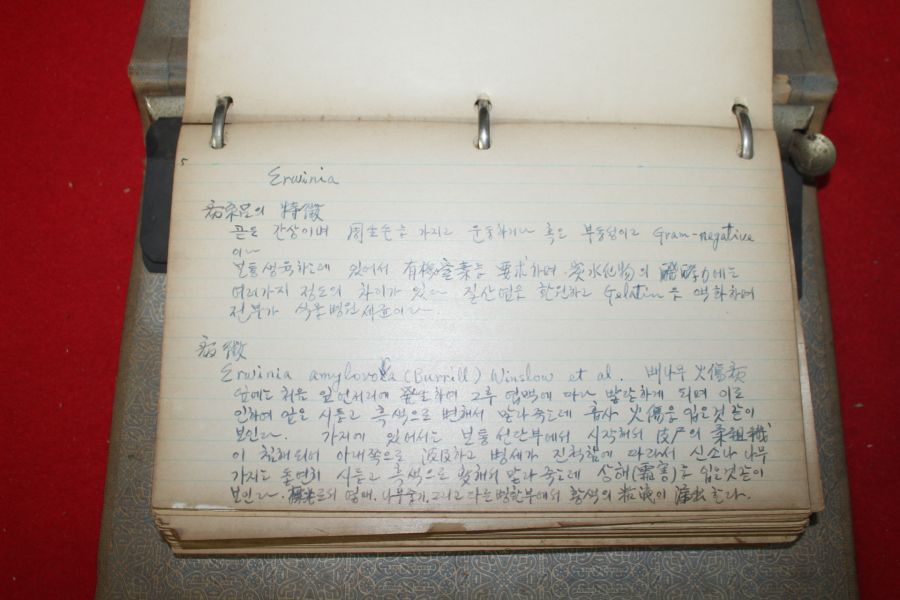 5
Erwinia
病原菌의 特徵
균은 간상이며 周生毛를 가지고 운동하거나 혹은 부동성이고 Gram-negative
이다
보통생육하는데 있어서 有機窒素를 要求하며 炭水化物의 醱酵力에는
여러가지 정도의 차이가 있다 질산염은 환원하고 Gelatin을 액화하며
전부가 식물병원세균이다.
病徵
Erwinia amylovora (Burrill) Winslow et al. 배나무 火傷病
잎에는 처음 잎언저리에 발생하여 그후 엽맥에 따라 발달하게 되며 이로
인하여 잎은 시들고 흑색으로 변해서 말라죽는데 火傷을 입은것같이
보인다. 가지에 있어서는 보통 선단부에서 시작해서 皮戸의 柔組織
이 침해되어 아래쪽으로 波及하고 병세가 진척함에 따라서 신소나 나무
가지는 돌연히 시들고 흑색으로 変해서 말라죽는데 상해(霜害)를 입은것같이
보인다. 나무줄기, 그리고 다른 병환부에서 황색의 粘液이 濢出한다.